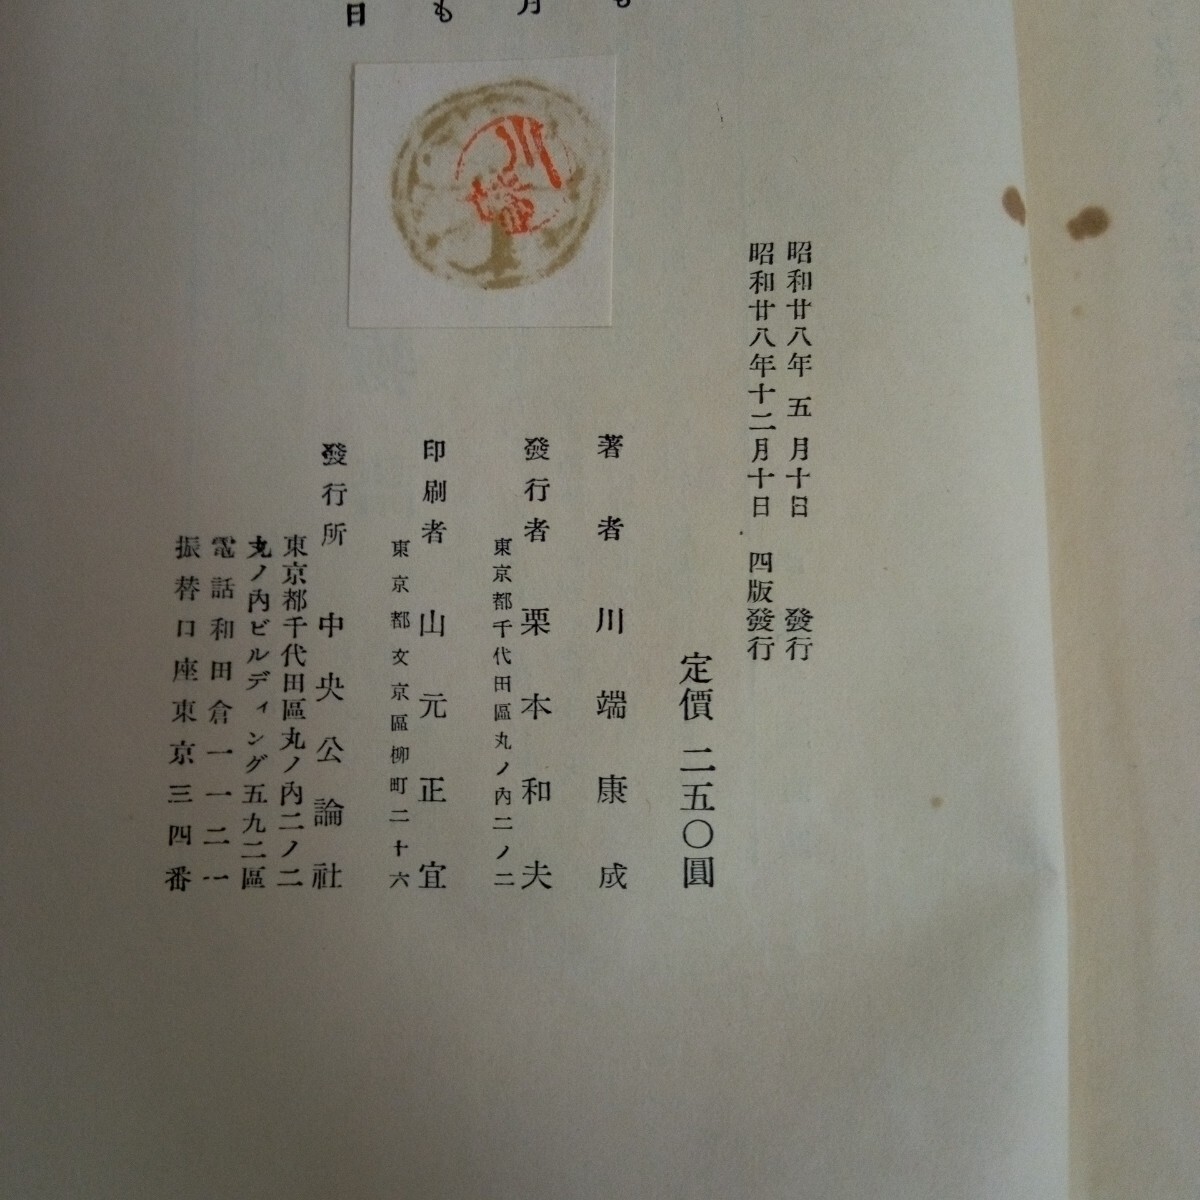 も
月
も
日
川端
昭和廿八年五月十日 發行
昭和廿八年十二月十日 四版發行
定價 二五〇圓
著者 川端康成
發行者 栗本和夫
東京都千代田區丸ノ內二ノ二
印刷者 山元正宜
東京都文京區柳町二十六
發行所 中央公論社
東京都千代田區丸ノ內二ノ二
丸ノ內ビルディング五九二區
電話和田倉一一二一
振替口座東京三四番